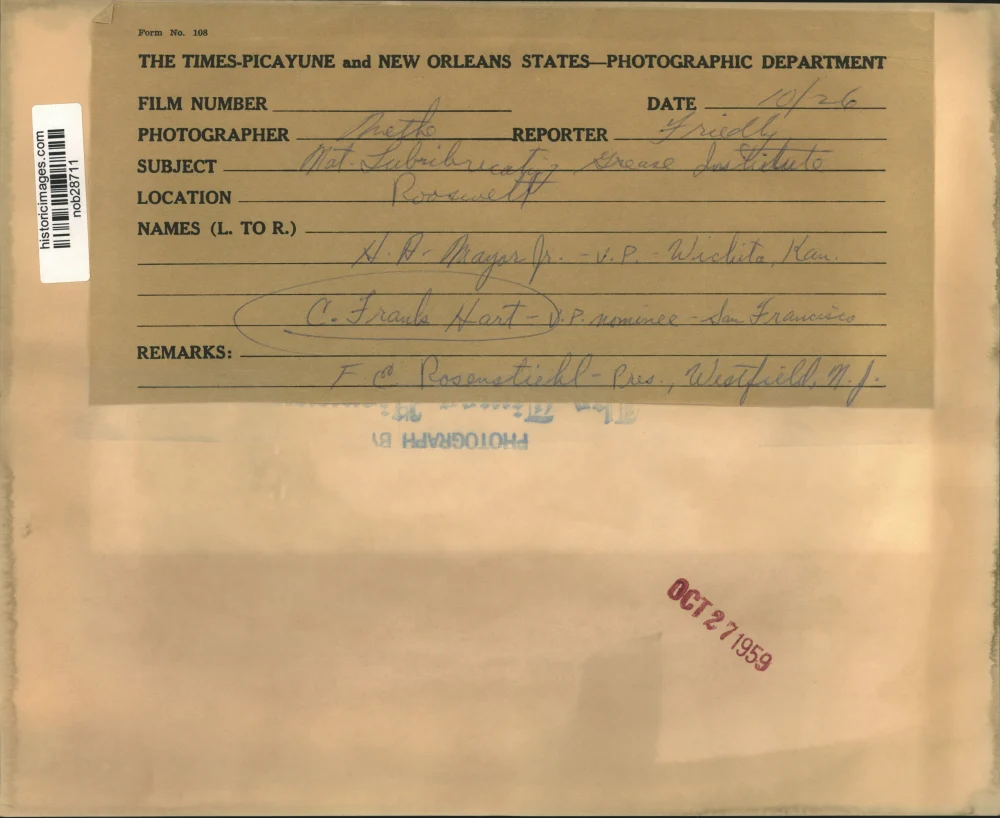 Form No. 108
THE TIMES-PICAYUNE and NEW ORLEANS STATES—PHOTOGRAPHIC DEPARTMENT
FILM NUMBER
DATE 10/26
PHOTOGRAPHER
REPORTER Friedly
SUBJECT Nat. Grease Institute
LOCATION Roosevelt
NAMES (L. TO R.)
H. A. Mayor Jr. - V.P. - Wichita, Kan.
C. Frank Hart - V.P. nominee - San Francisco
REMARKS:
F Rosenstiehl - Pres., Westfield, N.J.
PHOTOGRAPH BY
The Times
OCT 27 1959
historicimages.com
nob28711